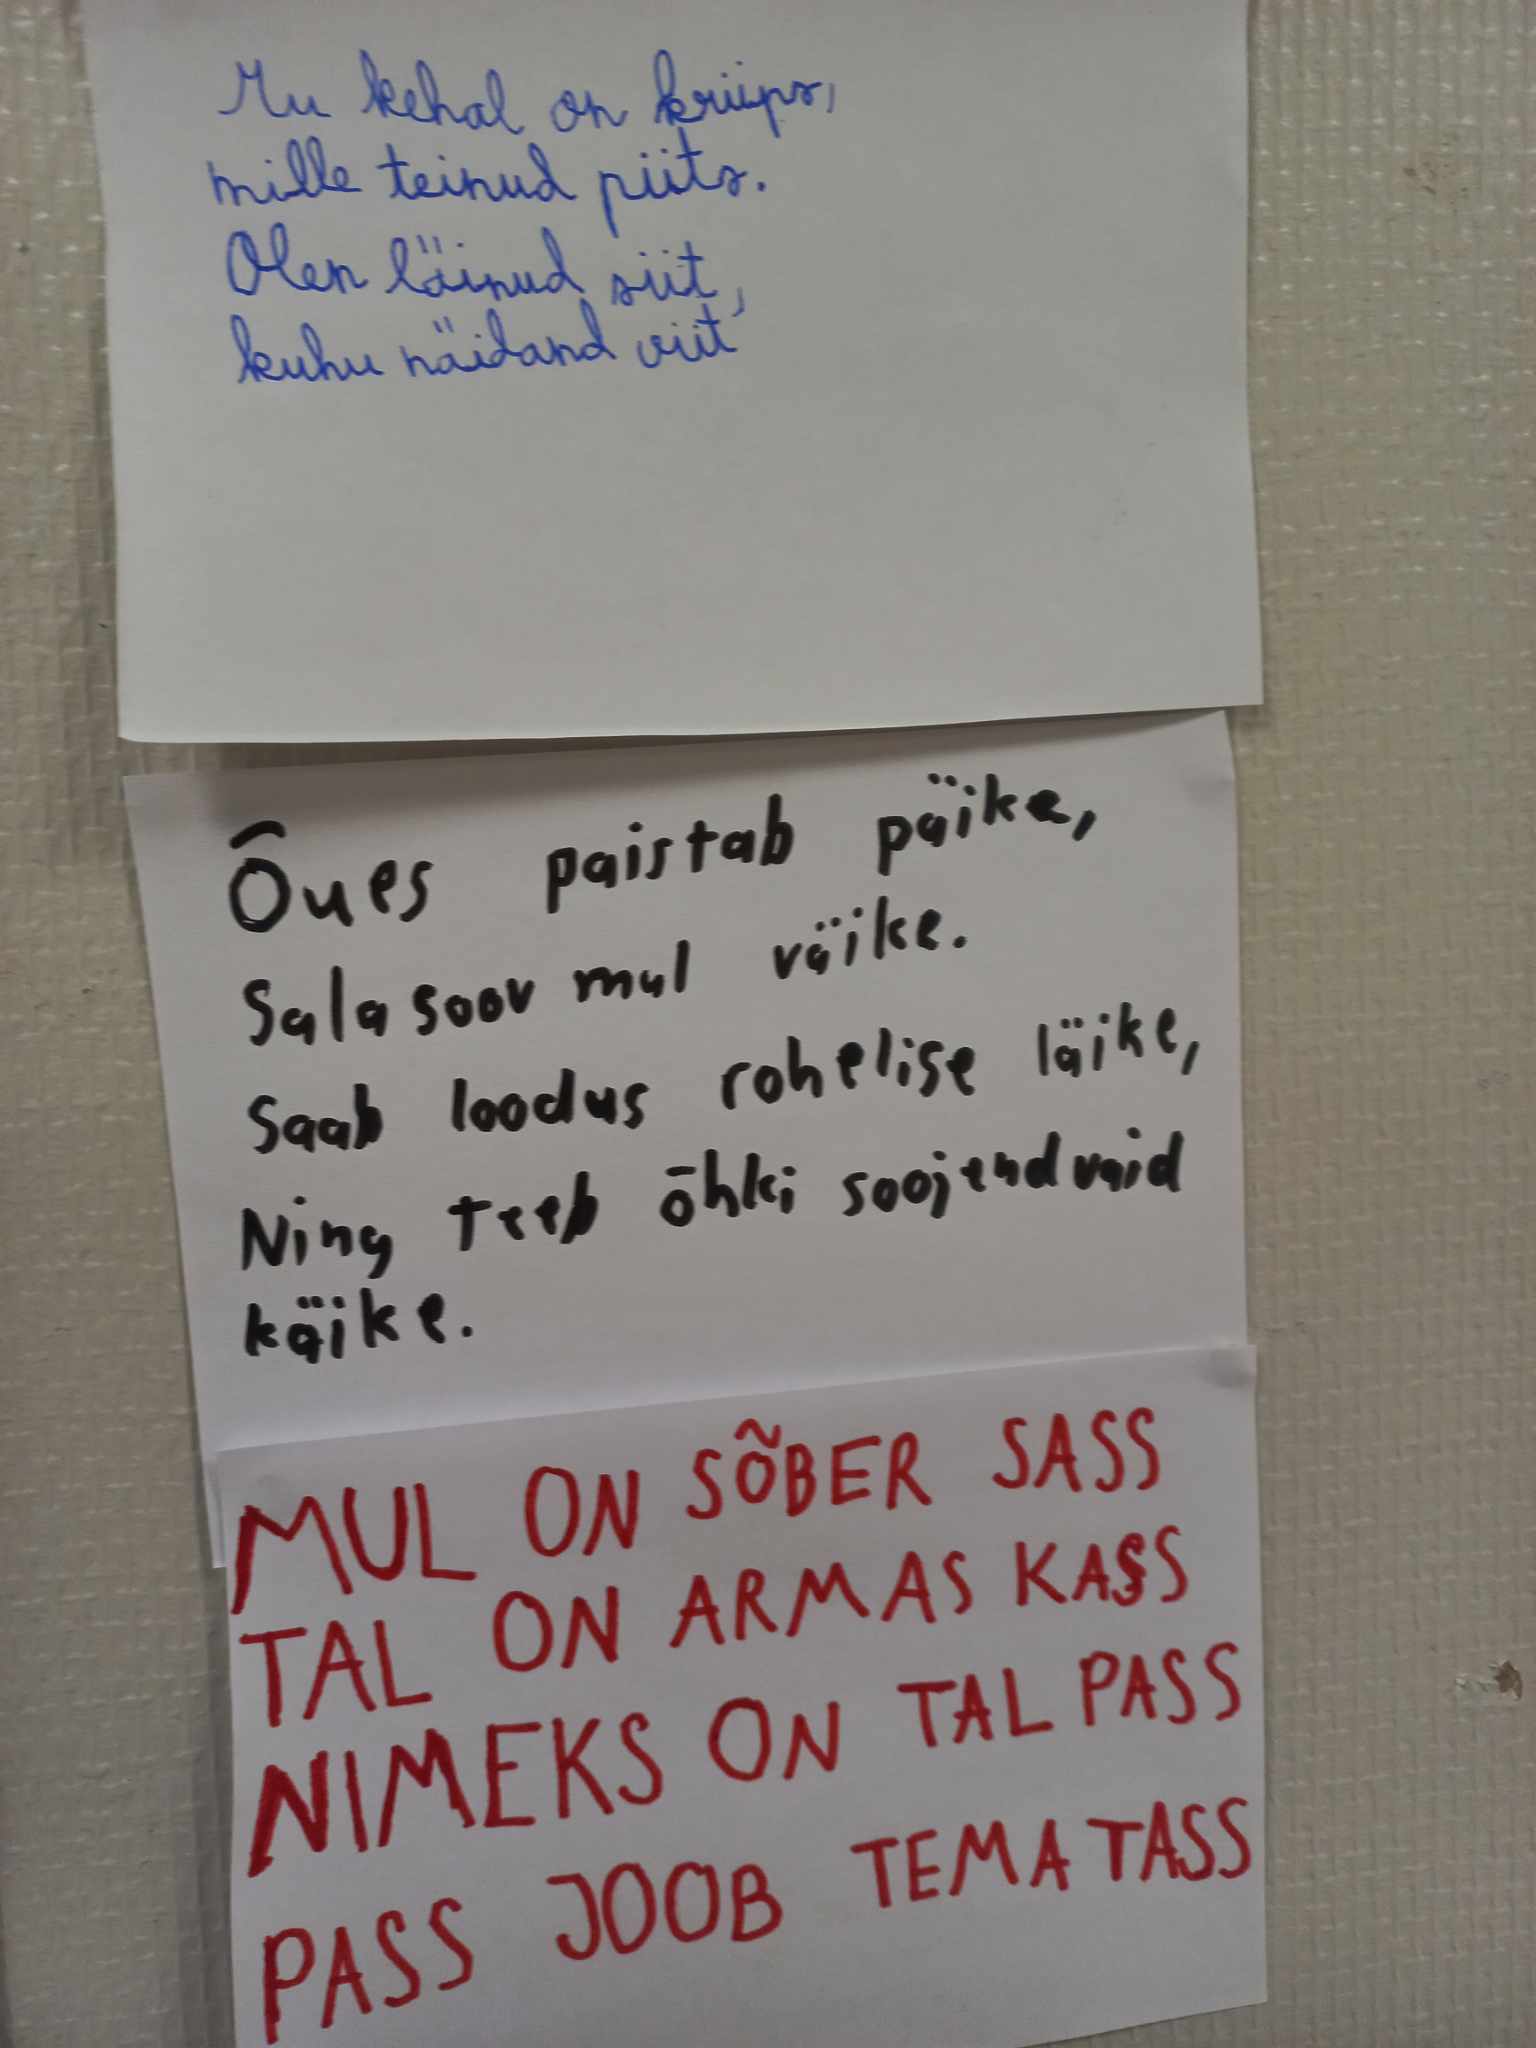 Mu kehal on kriips,
mille teinud piits.
Olen läinud siit,
kuhu näidand viit
Õues paistab päike,
Sala soov mul väike.
Saab loodus rohelise läike,
Ning teeb õhki soojendvaid
käike.
MUL ON SÕBER SASS
TAL ON ARMAS KASS
NIMEKS ON TAL PASS
PASS JOOB TEMA TASS